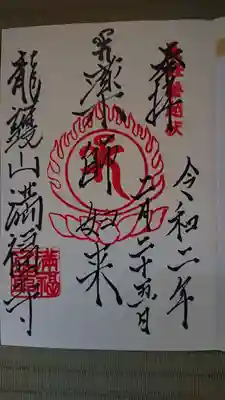 奉拝
令和二年
二月二十五日
義経腰越状
薬師如来
龍護山満福寺